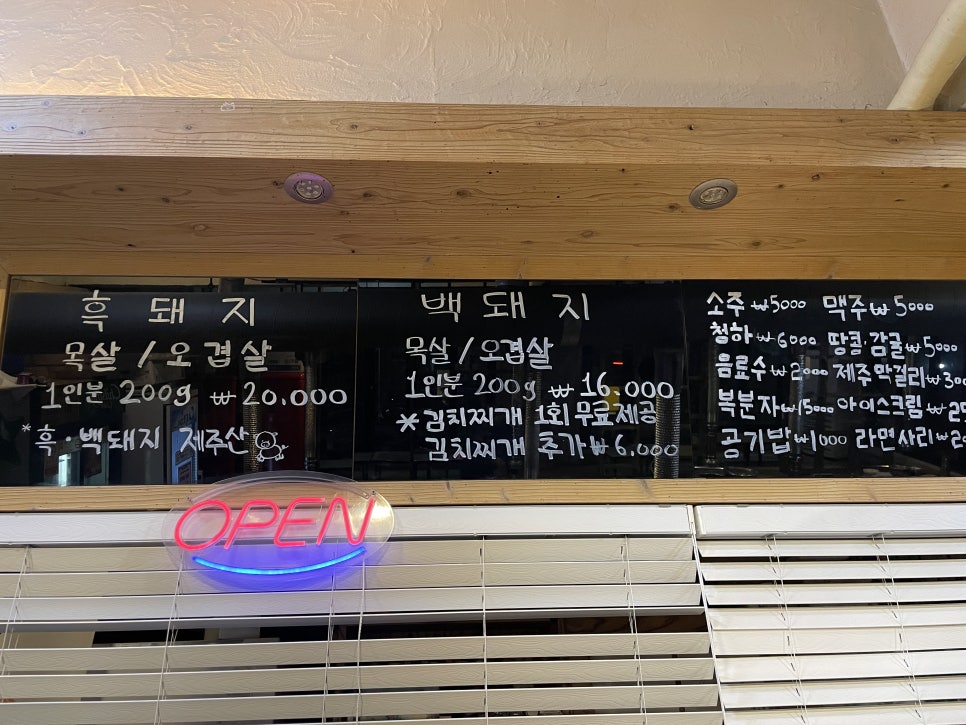 흑 돼 지
목살 / 오겹살
1인분 200g ₩20.000
*흑·백돼지 제주산
백 돼 지
목살 / 오겹살
1인분 200g ₩16.000
*김치찌개 1회 무료제공
김치찌개 추가 ₩6,000
소주 ₩5000 맥주 ₩5000
청하 ₩6000 땅콩·감귤 ₩5000
음료수 ₩2000 제주막걸리
복분자 ₩15000 아이스크림
공기밥 ₩1000 라면사리
OPEN